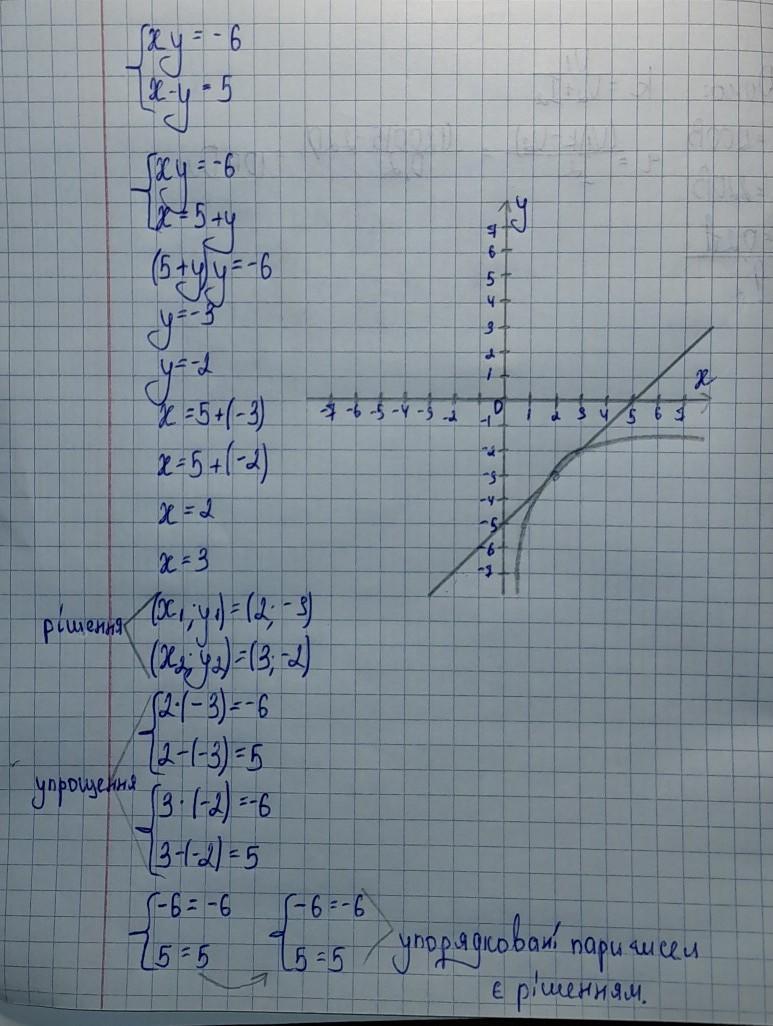 xy = -6
x-y = 5
xy = -6
x = 5+y
(5+y)y = -6
y = -3
y = -2
x = 5+(-3)
x = 5+(-2)
x = 2
x = 3
рішення
(x₁; y₁) = (2; -3)
(x₂; y₂) = (3; -2)
упрощення
2·(-3) = -6
2-(-3) = 5
3·(-2) = -6
3-(-2) = 5
-6 = -6 -6 = -6
5 = 5 5 = 5
упорядковані пари чисел
є рішенням.
y
7
6
5
4
3
2
1
x
-7 -6 -5 -4 -3 -2 0 1 2 3 4 5 6 7
-1
-2
-3
-4
-5
-6
-7